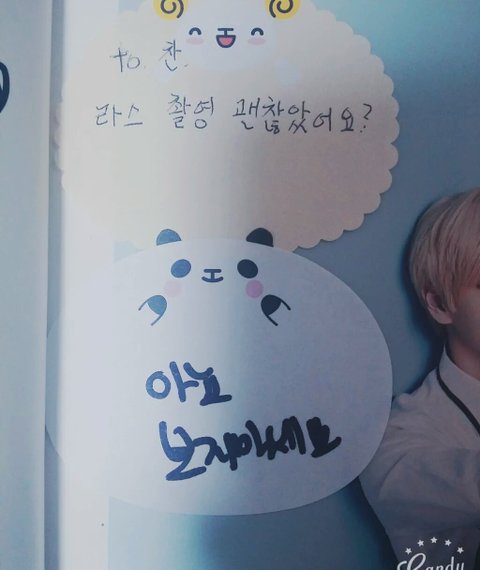 to 찬.
라스 촬영 괜찮았어요?
아뇨
보지마세요
Candy